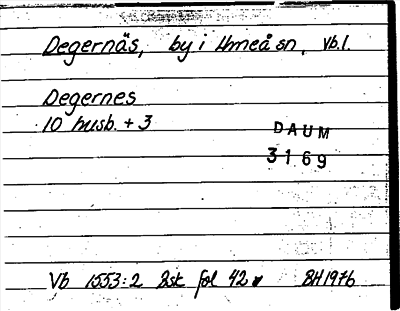 Degernäs, by i Umeå sn, Vb.l.
Degernes
10 husb. + 3
DAUM
3169
Vb 1553:2 Åsk fol 42 BH1976